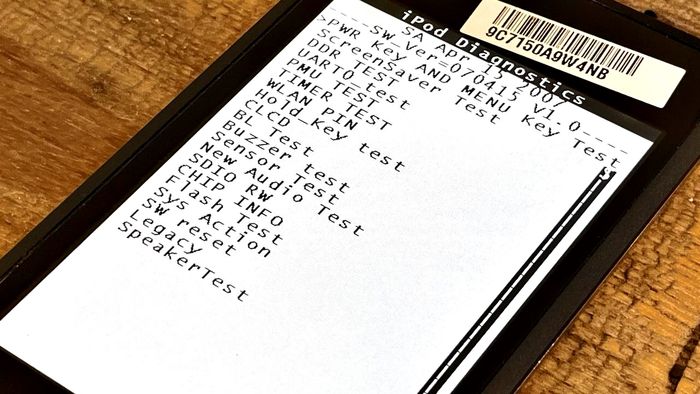 9C7150A9W4NB
iPod Diagnostics
SA Apr 15 2007
----SW Ver=070415 v1.0----
>PWR Key AND MENU Key Test
ScreenSaver Test
DDR TEST
UART0 test
PMU TEST
TIMER TEST
WLAN PIN
Hold Key test
CLCD
BL Test
Buzzer test
Sensor Test
New Audio Test
SDIO RW
CHIP INFO
Flash Test
Sys Action
SW reset
Legacy
SpeakerTest